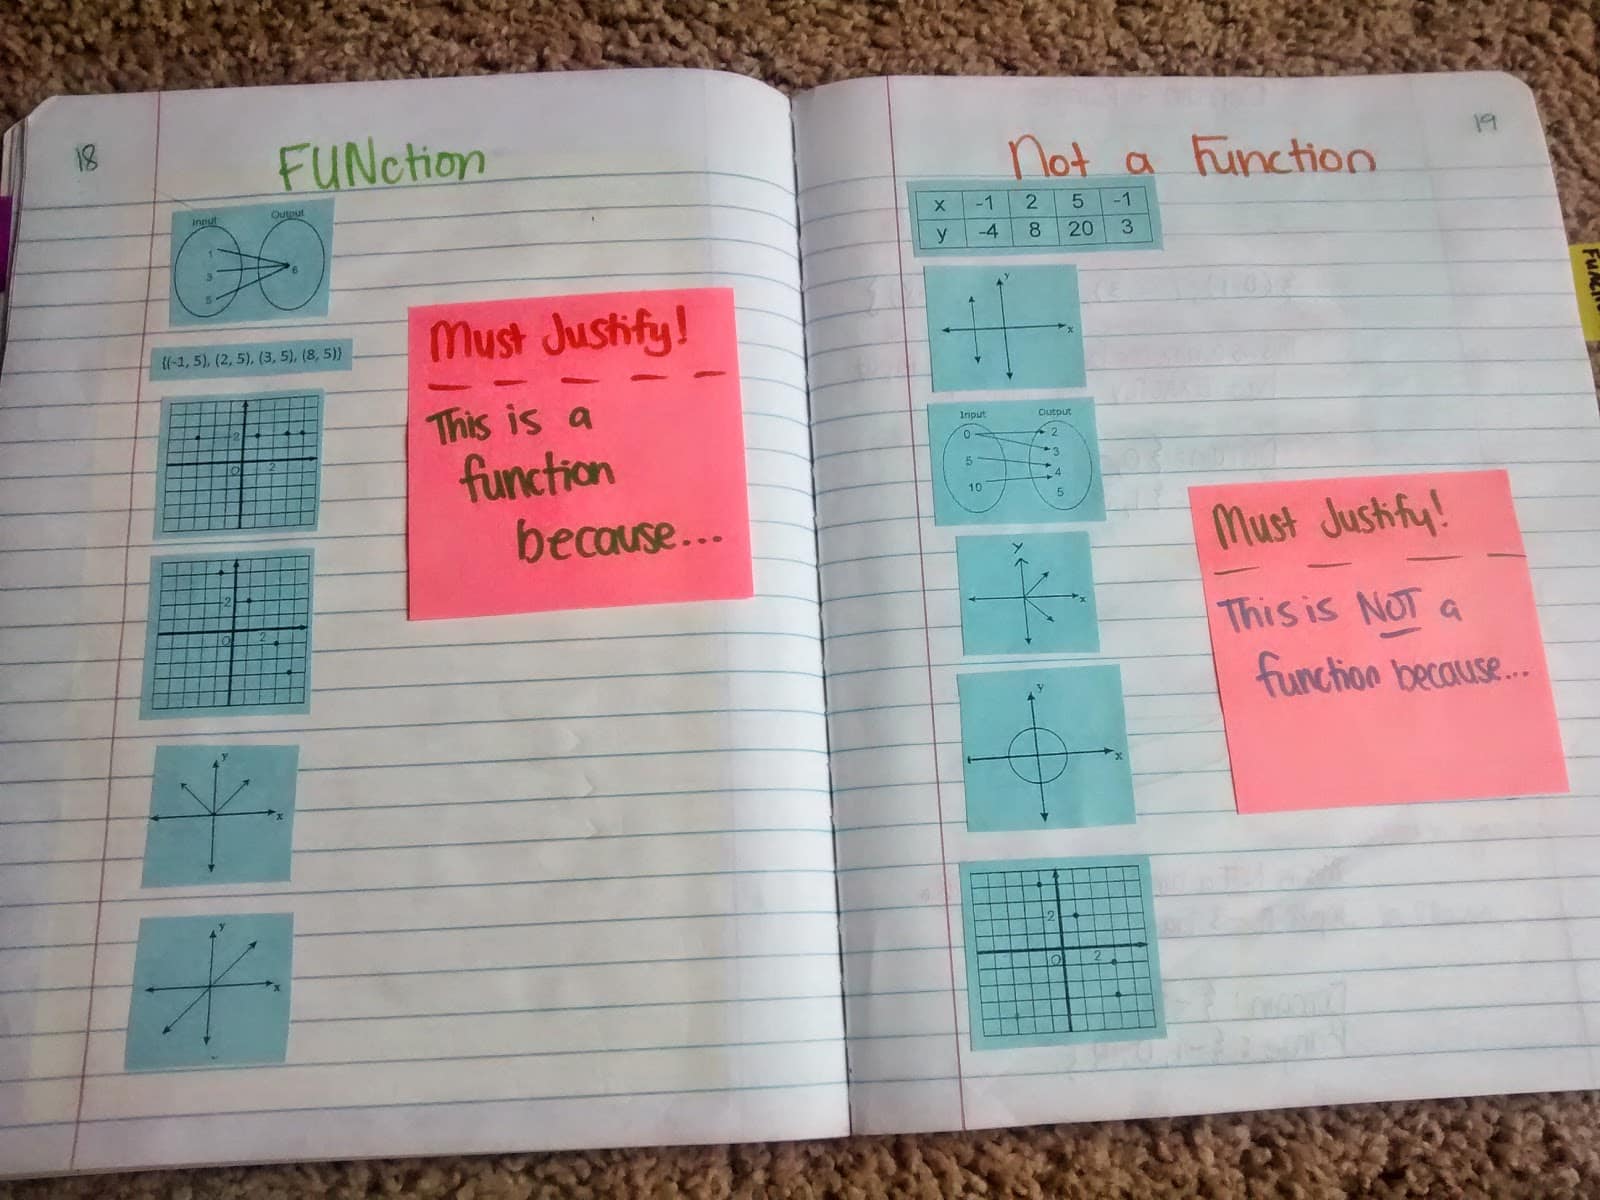 18
FUNction
Input Output
1
3
5
6
{(-1, 5), (2, 5), (3, 5), (8, 5)}
2
O 2
2
O 2
y
x
y
x
Must Justify!
This is a
function
because...
19
Not a Function
x -1 2 5 -1
y -4 8 20 3
y
x
Input Output
0 2
3
5 4
10 5
y
x
y
x
2
O 2
Must Justify!
This is NOT a
function because...